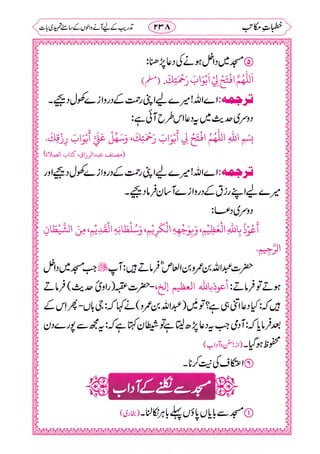 خطباتِ مکاتب
۲۳۸
تدریب کے لیے آنے والوں کے سامنے تمہیدی بات
⑤ مسجد میں داخل ہونے کی یہ دعا پڑھنا:
اَللّٰهُمَّ افْتَحْ لِيْٓ اَبْوَابَ رَحْمَتِكَ. (مسلم)
ترجمہ: اے اللہ! میرے لیے اپنی رحمت کے دروازے کھول دیجیے۔
دوسری حدیث میں یہ دعا اس طرح آئی ہے:
بِسْمِ اللّٰهِ اَللّٰهُمَّ افْتَحْ لِيْ اَبْوَابَ رَحْمَتِكَ، وَسَهِّلْ عَلَيَّ اَبْوَابَ رِزْقِكَ.
(مصنف عبدالرزاق، کتاب الصلاة)
ترجمہ: اے اللہ! میرے لیے اپنی رحمت کے دروازے کھول دیجیے اور
میرے لیے اپنے رزق کے دروازے آسان فرما دیجیے۔
دوسری دعا:
اَعُوْذُ بِاللّٰهِ الْعَظِيْمِ، وَبِوَجْهِهِ الْكَرِيْمِ، وَسُلْطَانِهِ الْقَدِيْمِ، مِنَ الشَّيْطَانِ
الرَّجِيْمِ.
حضرت عبداللہ بن عمرو بن العاصؓ فرماتے ہیں: آپ ﷺ جب مسجد میں داخل
ہوتے تو فرماتے: أعوذ بالله العظيم إلخ، - حضرت عقبہ (راوئ حدیث) فرماتے
ہیں کہ: کیا دعا اتنی ہی ہے؟ میں (عبداللہ بن عمرو) نے کہا کہ: جی ہاں - پھر اس کے
بعد فرمایا کہ: آدمی جب یہ دعا پڑھ لیتا ہے تو شیطان کہتا ہے کہ: یہ مجھ سے پورے دن
محفوظ ہوگیا۔ (از: سنن ابو داود)
⑥ اعتکاف کی نیت کرنا۔
مسجد سے نکلنے کے آداب
① مسجد سے بایاں پاؤں پہلے باہر نکالنا۔ (بخاری)